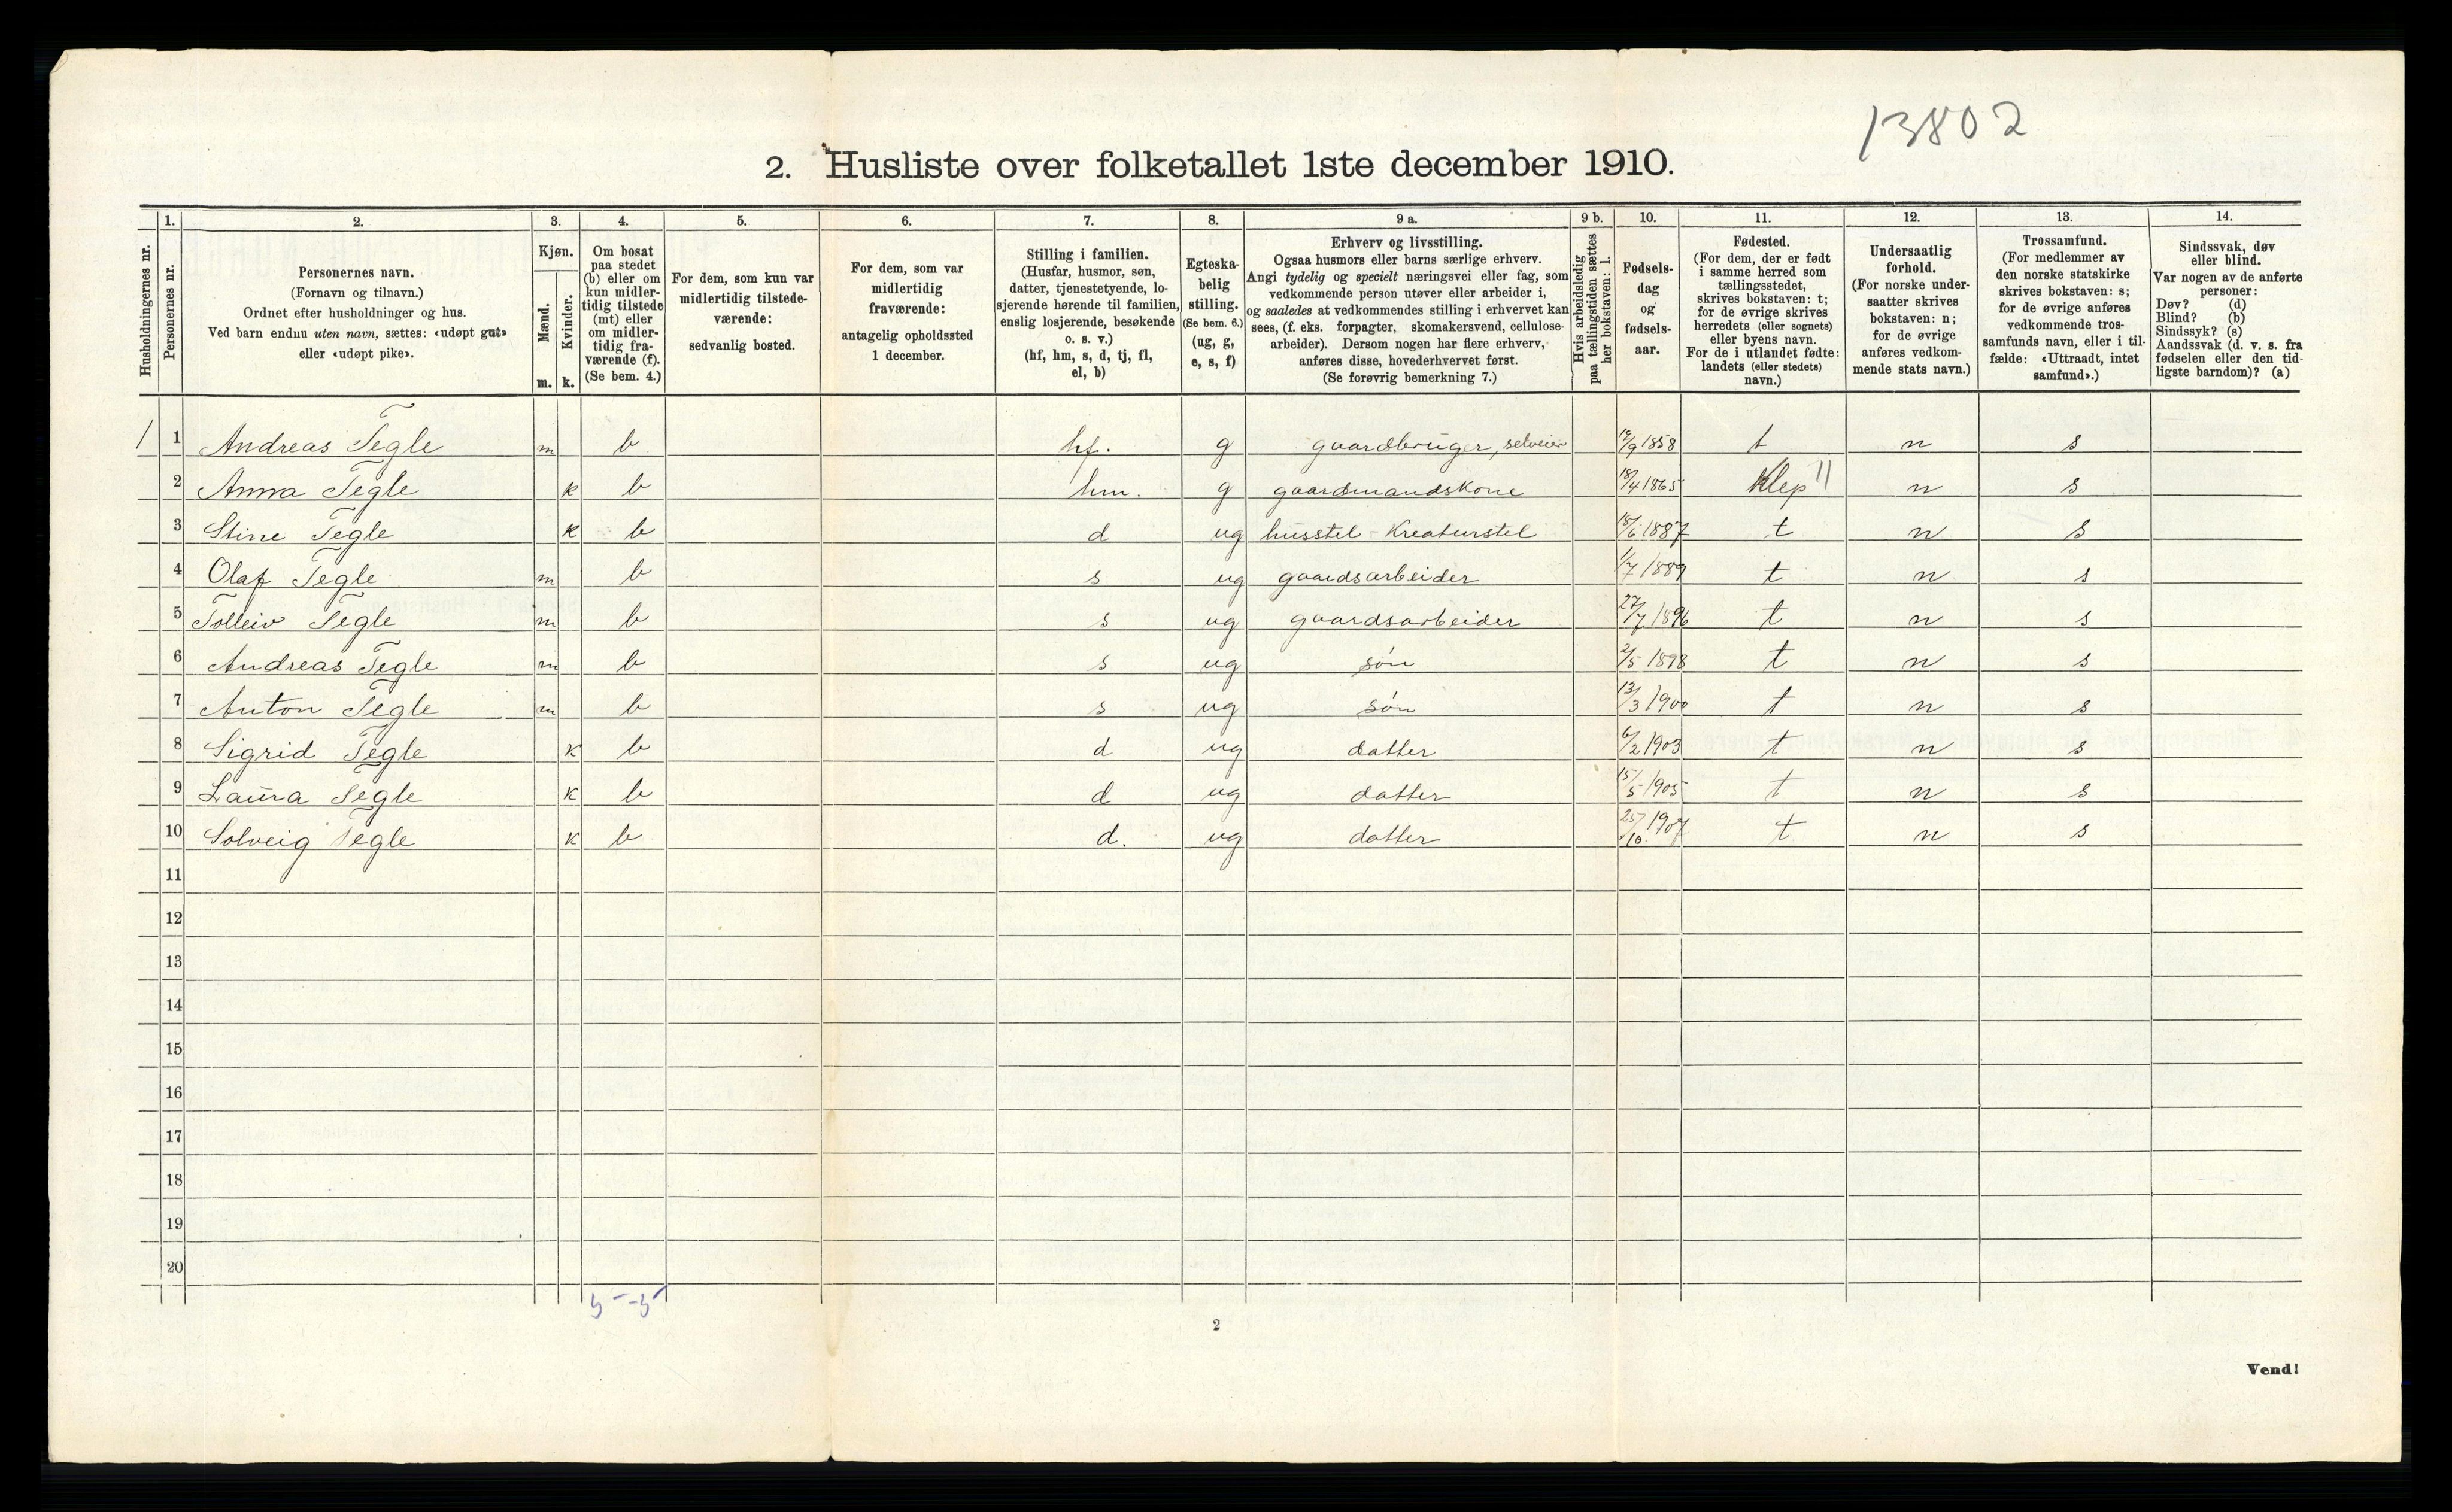 13802
2. Husliste over folketallet 1ste december 1910.
Husholdningernes nr.
1.
Personernes nr.
2.
Personernes navn.
(Fornavn og tilnavn.)
Ordnet efter husholdninger og hus.
Ved barn endnu uten navn, sættes: «udøpt gut»
eller «udøpt pike».
3.
Kjøn.
Mænd.
m.
Kvinder.
k.
4.
Om bosat
paa stedet
(b) eller om
kun midler-
tidig tilstede
(mt) eller
om midler-
tidig fra-
værende (f).
(Se bem. 4.)
5.
For dem, som kun var
midlertidig tilstede-
værende:
sedvanlig bosted.
6.
For dem, som var
midlertidig
fraværende:
antagelig opholdssted
1 december.
7.
Stilling i familien.
(Husfar, husmor, søn,
datter, tjenestetyende, lo-
sjerende hørende til familien,
enslig losjerende, besøkende
o. s. v.)
(hf, hm, s, d, tj, fl,
el, b)
8.
Egteska-
belig
stilling.
(Se bem. 6.)
(ug, g,
e, s, f)
9 a.
Erhverv og livsstilling.
Ogsaa husmors eller barns særlige erhverv.
Angi tydelig og specielt næringsvei eller fag, som
vedkommende person utøver eller arbeider i,
og saaledes at vedkommendes stilling i erhvervet kan
sees, (f. eks. forpagter, skomakersvend, cellulose-
arbeider). Dersom nogen har flere erhverv,
anføres disse, hovederhvervet først.
(Se forøvrig bemerkning 7.)
9 b.
Hvis arbeidsledig
paa tællingstiden sættes
her bokstaven: l.
10.
Fødsels-
dag
og
fødsels-
aar.
11.
Fødested.
(For dem, der er født
i samme herred som
tællingsstedet,
skrives bokstaven: t;
for de øvrige skrives
herredets (eller sognets)
eller byens navn.
For de i utlandet fødte:
landets (eller stedets)
navn.)
12.
Undersaatlig
forhold.
(For norske under-
saatter skrives
bokstaven: n;
for de øvrige
anføres vedkom-
mende stats navn.)
13.
Trossamfund.
(For medlemmer av
den norske statskirke
skrives bokstaven: s;
for de øvrige anføres
vedkommende tros-
samfunds navn, eller i til-
fælde: «Uttraadt, intet
samfund».)
14.
Sindssvak, døv
eller blind.
Var nogen av de anførte
personer:
Døv? (d)
Blind? (b)
Sindssyk? (s)
Aandssvak (d. v. s. fra
fødselen eller den tid-
ligste barndom)? (a)
1 1 Andreas Tegle m b hf. g gaardbruger, selveier /9 1858 t n s
2 Anna Tegle k b hm. g gaardmandskone 18/4 1865 Klep 11 n s
3 Stine Tegle k b d ug husstel - Kreaturstel 18/6 1887 t n s
4 Olaf Tegle m b s ug gaardsarbeider 1/7 1889 t n s
5 Tolleiv Tegle m b s ug gaardsarbeider 27/7 1896 t n s
6 Andreas Tegle m b s ug søn 2/5 1898 t n s
7 Anton Tegle m b s ug søn 13/3 1900 t n s
8 Sigrid Tegle k b d ug datter 6/2 1903 t n s
9 Laura Tegle k b d ug datter 15/5 1905 t n s
10 Solveig Tegle k b d. ug datter 25/10. 1907 t n s
11
12
13
14
15
16
17
18
19
20
5-5
2
Vend!